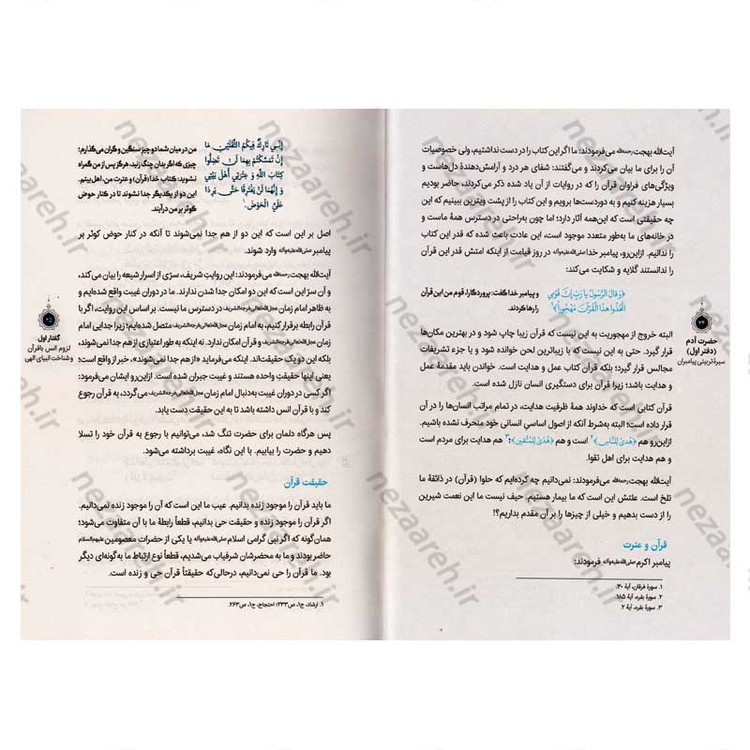 آیت‌الله بهجت رحمه‌الله می‌فرمودند: ما اگر این کتاب را در دست نداشتیم، ولی خصوصیات
آن را برای ما بیان می‌کردند و می‌گفتند: شفای هر درد و آرامش‌دهندهٔ دل‌هاست و
ویژگی‌های فراوان قرآن را که در روایات از آن یاد شده ذکر می‌کردند، حاضر بودیم
بسیار هزینه کنیم و به دوردست‌ها برویم و این کتاب را از پشت ویترین ببینیم که
چه حقیقتی است که این‌همه آثار دارد؛ اما چون به‌راحتی در دسترس همهٔ ماست و
در خانه‌های ما به‌طور متعدد موجود است، این عادت باعث شده‌که قدر این کتاب
را ندانیم. ازاین‌رو، پیامبر خدا صلی‌الله‌علیه‌وآله در روز قیامت از اینکه امتش قدر این قرآن
را ندانستند گلایه و شکایت می‌کند:
﴿وَقالَ الرَّسُولُ يا رَبِّ إِنَّ قَوْمِي
اتَّخَذُوا هذَا الْقُرْآنَ مَهْجُوراً﴾۱
و پیامبر خدا گفت: پروردگارا، قوم من این قرآن
را رها کردند.
البته خروج از مهجوریت به این نیست که قرآن زیبا چاپ شود و در بهترین مکان‌ها
قرار گیرد. حتی به این نیست که با زیباترین لحن خوانده شود و یا جزء تزیینات
مجالس قرار گیرد؛ بلکه قرآن کتاب عمل و هدایت است. خواندن باید مقدمهٔ عمل
و هدایت باشد؛ زیرا قرآن برای دستگیری انسان نازل شده است.
قرآن کتابی است که خداوند همهٔ ظرفیت هدایت، در تمام مراتب انسان‌ها را در آن
قرار داده است؛ البته به‌شرط آنکه از اصول اساسیِ انسانی خود منحرف نشده باشیم.
ازاین‌رو هم ﴿هُدىً لِلنَّاسِ﴾۲ است و هم ﴿هُدىً لِلْمُتَّقِينَ﴾؛۳ هم هدایت برای مردم است
و هم هدایت برای اهل تقوا.
آیت‌الله بهجت رحمه‌الله می‌فرمودند: نمی‌دانیم چه کرده‌ایم که حلوا (قرآن) در ذائقهٔ ما
تلخ است. علتش این است که ما بیمار هستیم. حیف نیست ما این نعمت شیرین
را از دست بدهیم و خیلی از چیزها را بر آن مقدم بداریم؟!
قرآن و عترت
پیامبر اکرم صلی‌الله‌علیه‌وآله فرمودند:
۱. سورهٔ فرقان، آیهٔ ۳۰.
۲. سورهٔ بقره، آیهٔ ۱۸۵
۳. سورهٔ بقره، آیهٔ ۲.
حضرت آدم
(دفتر اول)
سیرهٔ تربیتی پیامبران
إِنِّي تارِكٌ فِيكُمُ الثَّقَلَيْنِ ما
إِنْ تَمَسَّكْتُمْ بِهِما لَنْ تَضِلُّوا
كِتابَ اللَّهِ وَ عِتْرَتِي أَهْلَ بَيْتِي
وَ إِنَّهُما لَنْ يَفْتَرِقا حَتَّى يَرِدا
عَلَيَّ الْحَوْضَ.۱
من در میان شما دو چیز سنگین و گران می‌گذارم؛
چیزی که اگر بدان چنگ زنید، هرگز پس از من گمراه
نشوید: کتاب خدا (قرآن) و عترت من، اهل‌بیتم.
این دو از یکدیگر جدا نشوند تا در کنار حوض
کوثر بر من درآیند.
اصل بر این است که این دو از هم جدا نمی‌شوند تا آنکه در کنار حوض کوثر بر
پیامبر صلی‌الله‌علیه‌وآله وارد شوند.
آیت‌الله بهجت رحمه‌الله می‌فرمودند: این روایتِ شریف، سرّی از اسرار شیعه را بیان می‌کند،
و آن سرّ این است که این دو امکان جدا شدن ندارند. ما در دوران غیبت واقع شده‌ایم و
به ظاهر امام زمان عجل‌الله‌تعالی‌فرجه‌الشریف در دسترس ما نیست. بر اساس این روایت، اگر با
قرآن رابطه برقرار کنیم، به امام زمان عجل‌الله‌تعالی‌فرجه‌الشریف متصل شده‌ایم؛ زیرا جدایی امام
زمان عجل‌الله‌تعالی‌فرجه‌الشریف و قرآن امکان ندارد. نه اینکه به طور اعتباری از هم جدا نمی‌شوند،
بلکه این دو یک حقیقت‌اند. اینکه می‌فرماید «از هم جدا نمی‌شوند»، یک خبر است؛
یعنی اینها حقیقتِ واحده هستند و غیبت جبران شده است. ازاین‌رو ایشان می‌فرمود:
اگر کسی در دوران غیبت به‌دنبال امام زمان عجل‌الله‌تعالی‌فرجه‌الشریف می‌گردد، به قرآن رجوع
کند و با قرآن انس داشته باشد تا به این حقیقت دست یابد.
پس هرگاه دلمان برای حضرت تنگ شد، می‌توانیم با رجوع به قرآن خود را تسلا
دهیم و حضرت را بیابیم. با این نگاه، غیبت برداشته می‌شود.
حقیقت قرآن
ما باید قرآن را موجود زنده بدانیم. عیب ما این است که آن را موجود زنده نمی‌دانیم.
اگر قرآن را موجود زنده و حقیقت حی بدانیم، قطعاً رابطهٔ ما با آن متفاوت می‌شود؛
همان‌گونه که اگر نبی گرامی اسلام صلی‌الله‌علیه‌وآله یا یکی از حضرات معصومین علیهم‌السلام
حاضر بودند و ما به محضرشان شرفیاب می‌شدیم، قطعاً نوع ارتباط ما به‌گونه‌ای دیگر
بود. ما قرآن را حی نمی‌دانیم، درحالی‌که حقیقتاً قرآن حی و زنده است.
۱. ارشاد، ج۱، ص۲۳۳؛ احتجاج، ج۱، ص۲۶۳.
گفتار اول
لزوم انس با قرآن
و شناخت انبیای الهی
nezaareh.ir